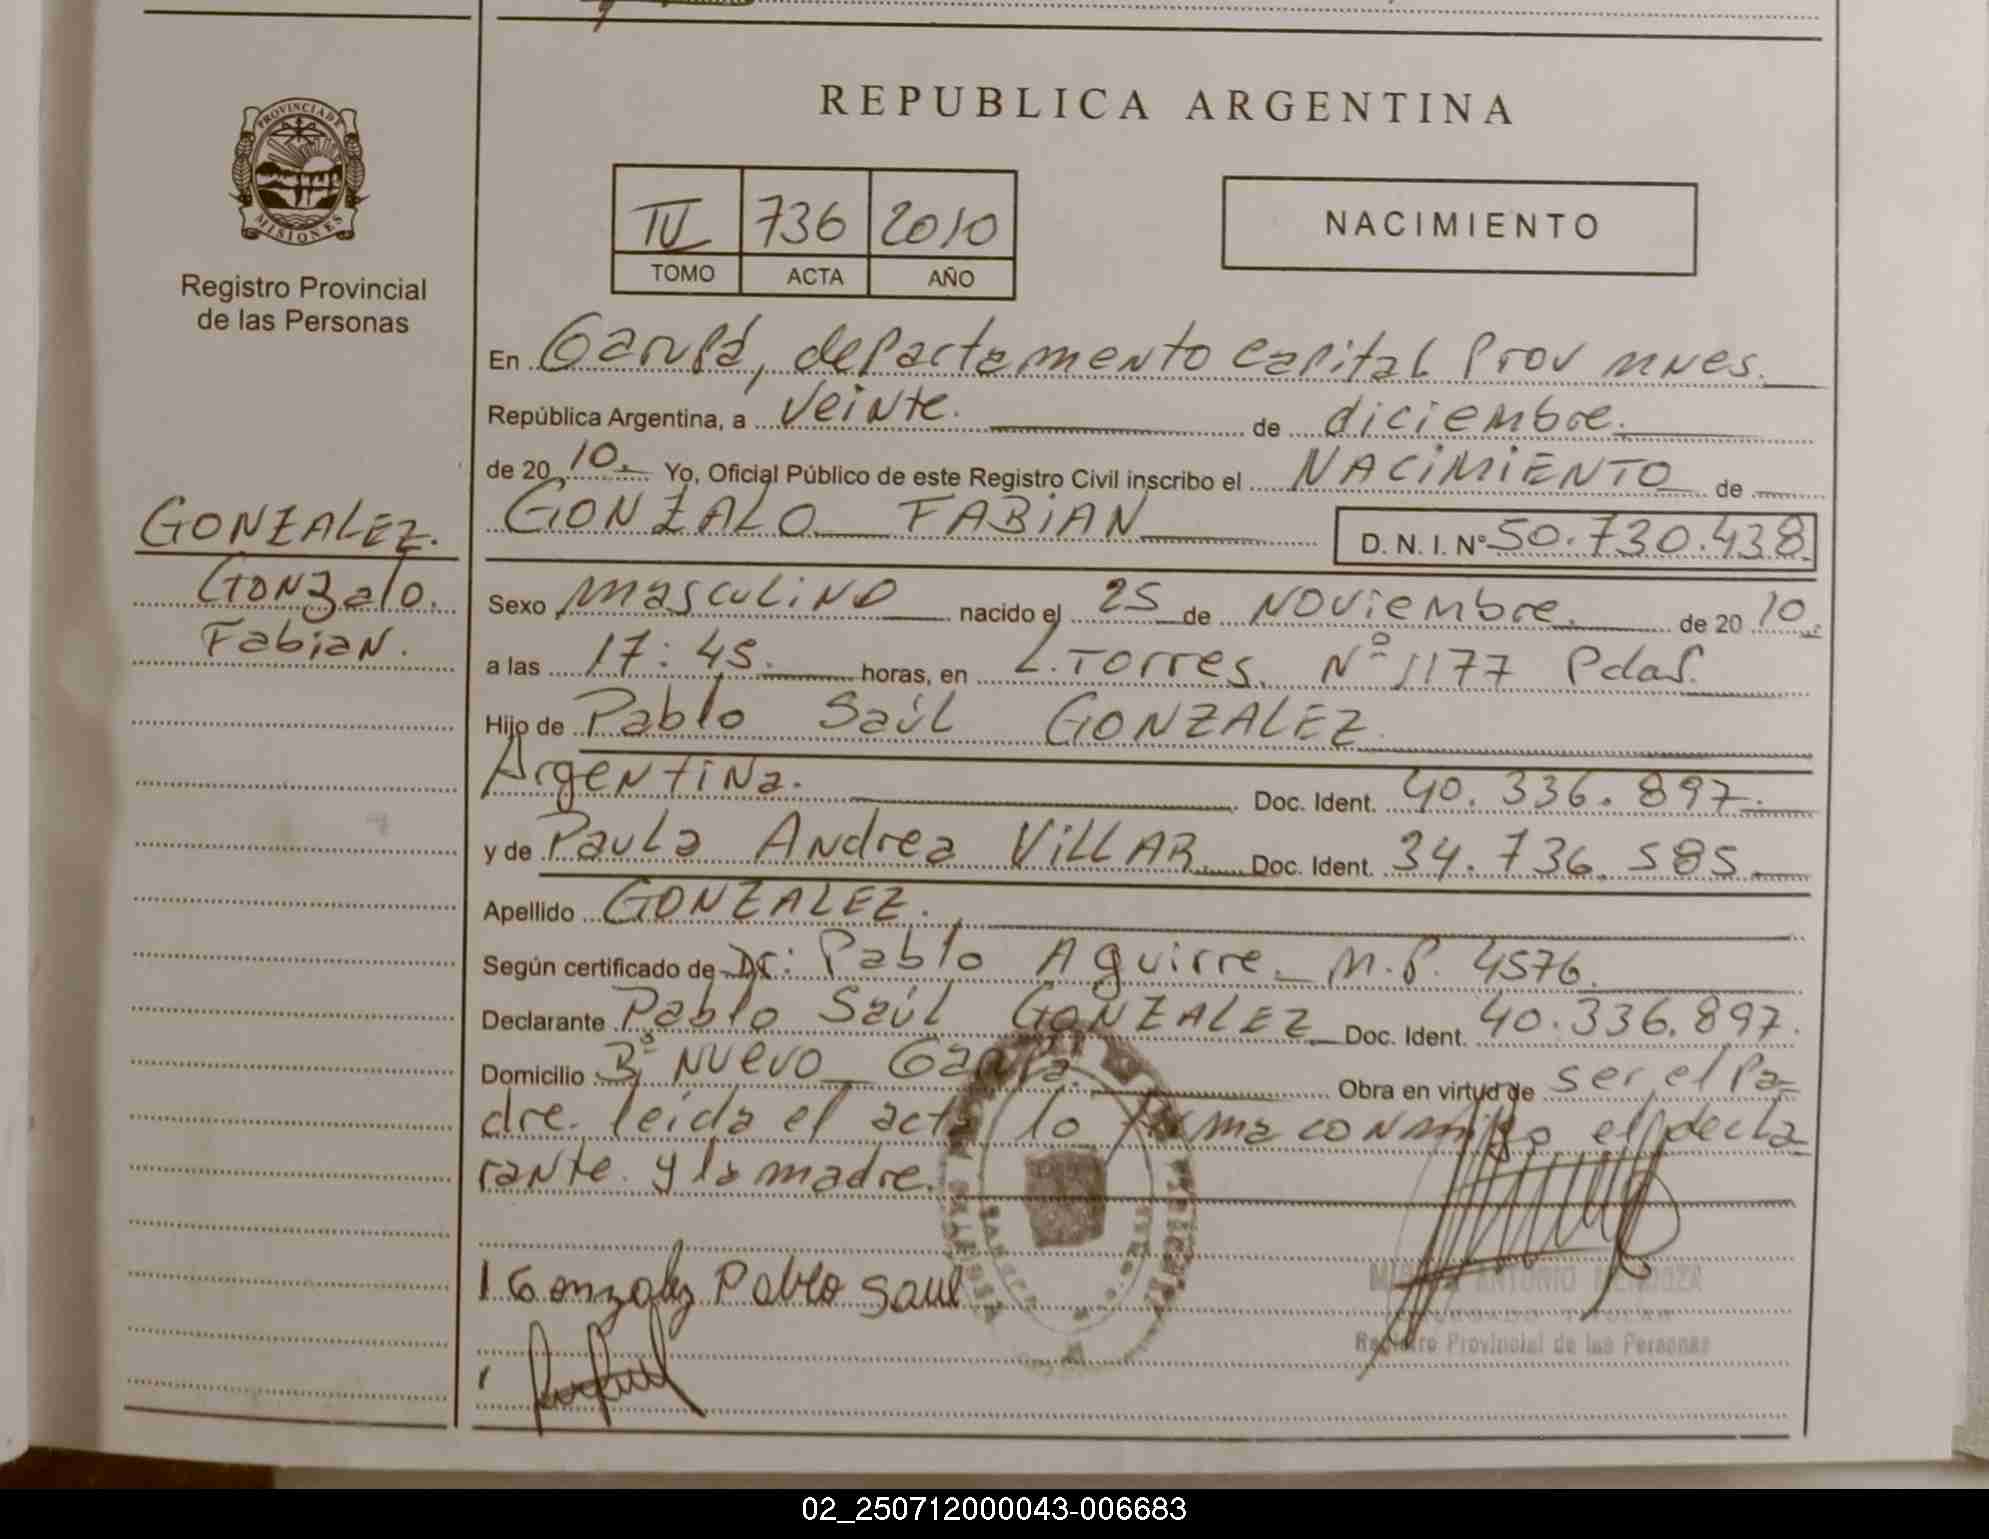 REPUBLICA ARGENTINA
PROVINCIA DE
MISIONES
Registro Provincial
de las Personas
IV 736 2010
TOMO ACTA AÑO
NACIMIENTO
En Garupá, departamento capital Prov mnes.
República Argentina, a veinte. de diciembre.
de 20 10. Yo, Oficial Público de este Registro Civil inscribo el NACIMIENTO de
GONZALO FABIAN D. N. I. Nº 50.730.438
GONZALEZ.
Gonzalo.
Fabian.
Sexo masculino nacido el 25 de Noviembre. de 20 10.
a las 17:45. horas, en L. Torres. Nº 1177 Pdas.
Hijo de Pablo Saúl GONZALEZ
Argentina. Doc. Ident. 40.336.897.
y de Paula Andrea VILLAR Doc. Ident. 34.736.585
Apellido GONZALEZ.
Según certificado de Dr: Pablo Aguirre. M.P. 4576.
Declarante Pablo Saúl GONZALEZ Doc. Ident. 40.336.897.
Domicilio Bº Nuevo Garupa. Obra en virtud de ser el Pa=
dre. leida el acta lo firma conmigo el decla
rante y la madre.
Gonzalez Pablo Saul
ANTONIO
Registro Provincial de las Personas
02_250712000043-006683